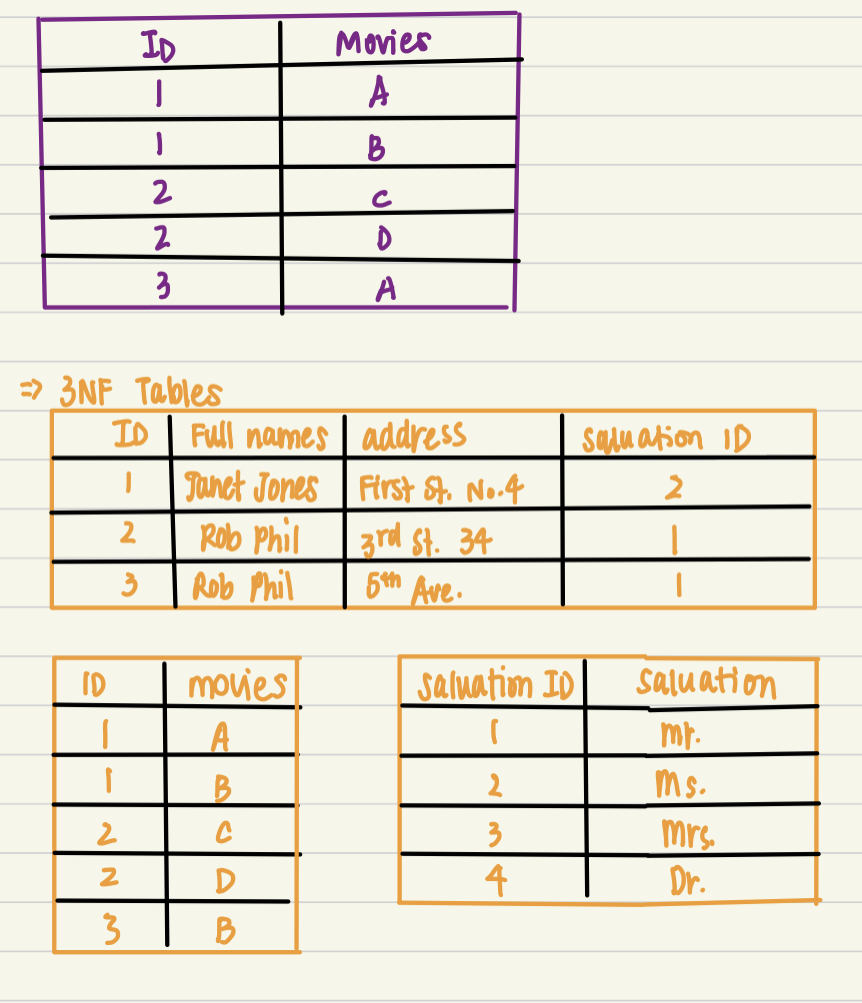 ID Movies
1 A
1 B
2 C
2 D
3 A
⇒ 3NF Tables
ID Full names address saluation ID
1 Janet Jones First St. No.4 2
2 Rob Phil 3rd St. 34 1
3 Rob Phil 5th Ave. 1
ID movies
1 A
1 B
2 C
2 D
3 B
saluation ID saluation
1 Mr.
2 Ms.
3 Mrs.
4 Dr.